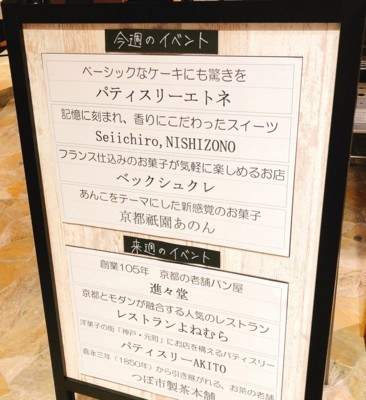 今週のイベント
ベーシックなケーキにも驚きを
パティスリーエトネ
記憶に刻まれ、香りにこだわったスイーツ
Seiichiro,NISHIZONO
フランス仕込みのお菓子が気軽に楽しめるお店
ベックシュクレ
あんこをテーマにした新感覚のお菓子
京都祇園あのん
来週のイベント
創業105年 京都の老舗パン屋
進々堂
京都とモダンが融合する人気のレストラン
レストランよねむら
洋菓子の街「神戸・元町」にお店を構えるパティスリー
パティスリーAKITO
嘉永三年(1850年)から引き継がれる、お茶の老舗
つぼ市製茶本舗